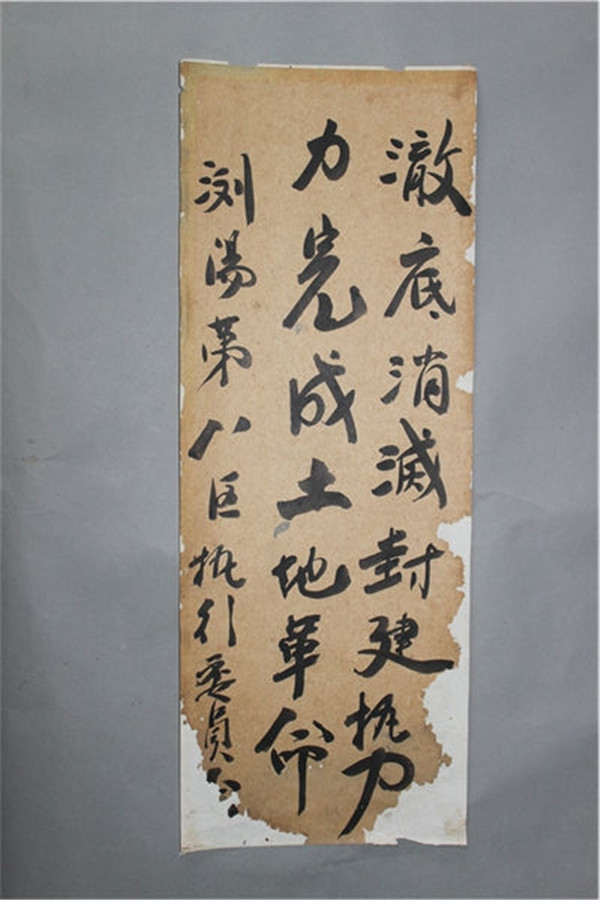 澈底消滅封建势
力完成土地革命
浏陽第八区执行委員会